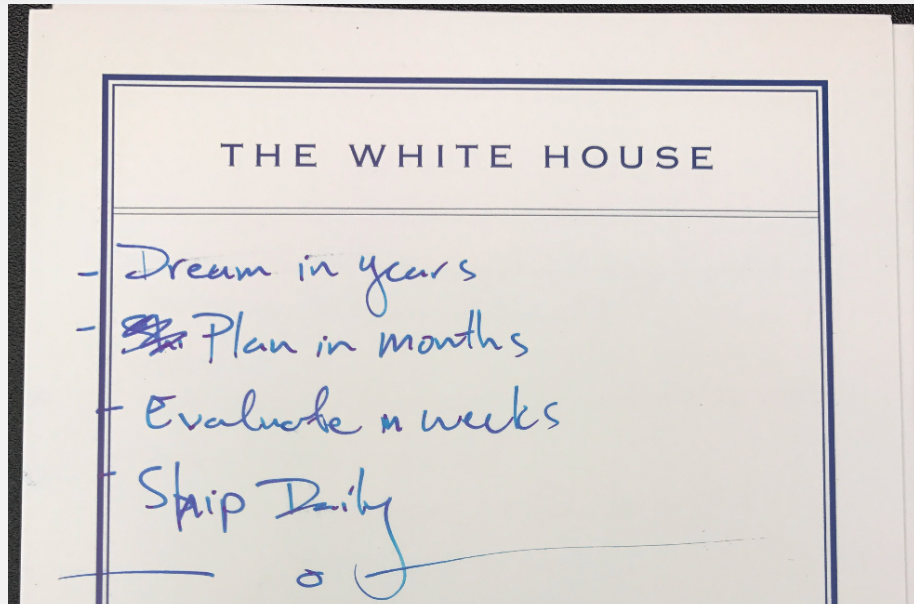 THE WHITE HOUSE
- Dream in years
- Plan in months
- Evaluate in weeks
- Ship Daily